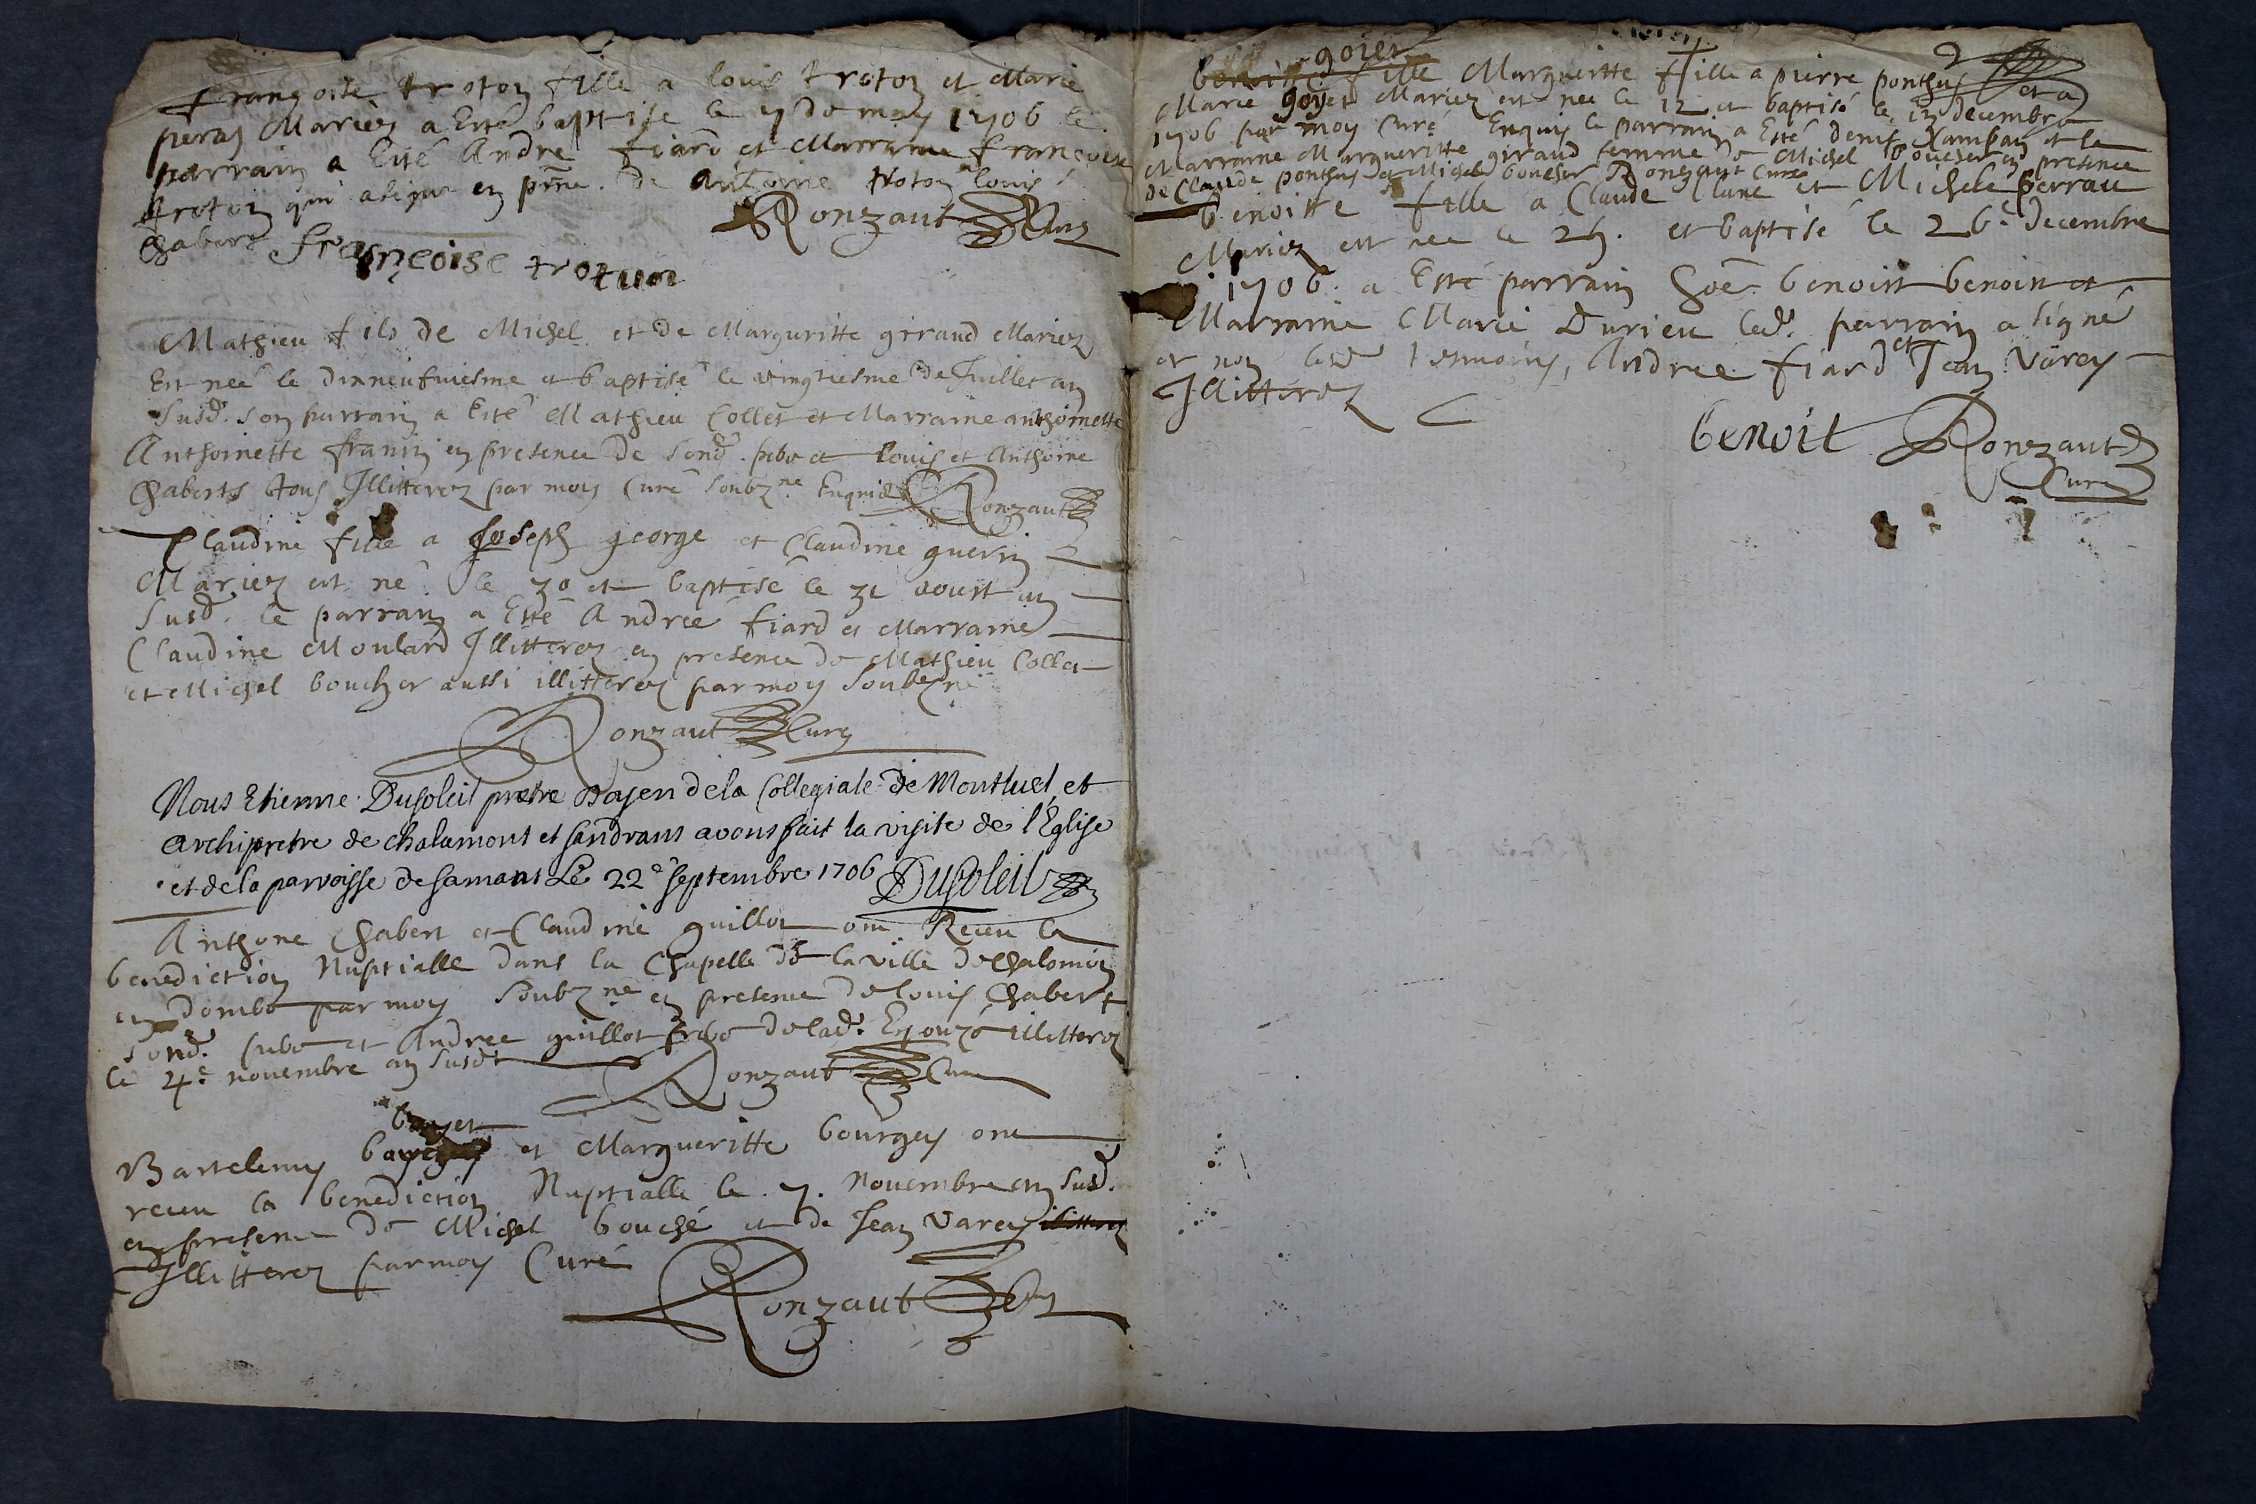 françoise troton fille a louis troton et Marie
peras Mariez a Esté baptisé le 7 de may 1706 le
parrain a Esté André fiard et Marraine françoise
troton qui a signé en pñce de antoine troton louis
Chabert
Ronzaut Curé
françoise trotun
Mathieu fils de Michel et de Marguritte giraud Mariez
Est neé le dixneufuiesme et baptisé le vingtiesme de Juillet an
susd. son parrain a Esté Mathieu Collet et Marraine anthoinette
Anthoinette franin en presence de Lond. et Louis et Anthoine
Chaberts tous Illitterez par moy Curé soubz.né Enquis
Ronzaut
Claudine fille a Joseph george et Claudine guerin
Mariez est né le 30 et baptisé le 31 aoust an
susd. le parrain a Esté Andreé fiard et Marraine
Claudine Moulard Illitterez en presence de Mathieu Collet
et Michel boucher aussi illitterez par moy soubz.né
Ronzaut Curé
Nous Etienne Dusoleil pretre Doyen de la Collegiale de Montluel, et
Archipretre de chalamont et sandrans avons fait la visite de l'Eglise
et de la parroisse de samans Le 22e septembre 1706 Dusoleil
Anthone Chabert et Claudine guillot ont Receu la
benediction Nuptialle dans la Chapelle de la ville de Chalomon
en dombe par moy soubz.né en presence de louis Chabert
et Andree guillot de lad. illitterez
le 4e novembre an susdt
Ronzaut Curé
bouet
Bartelemy et Margueritte bourgey ont
receu la benediction Nuptialle le 7. Novembre an susd.
en presence de Michel bouché et de Jean Varey illitterez
Illitterez par moy Curé
Ronzaut Curé
goier 2
benoitte fille Margueritte fille a pierre ponthus et a
Marie goyet Mariez est neé le 12 et baptisé le 13 decembre
1706 par moy Curé Enquis le parrain a Esté denis Xamban et la
Marraine Margueritte giraud femme de Michel boucher en presence
de Claude ponthus et Michel boucher Ronzaut Curé
benoitte fille a Claude Clune et Michele perrau
Mariez est neé le 25. et baptisé le 26e decembre
1706. a Esté parrain benoist benoist et
Marraine Marie Durieu led. parrain a signé
et non les temoins, Andree fiard et Jean Varey
Illitterez
benoit Ronzaut
Curé